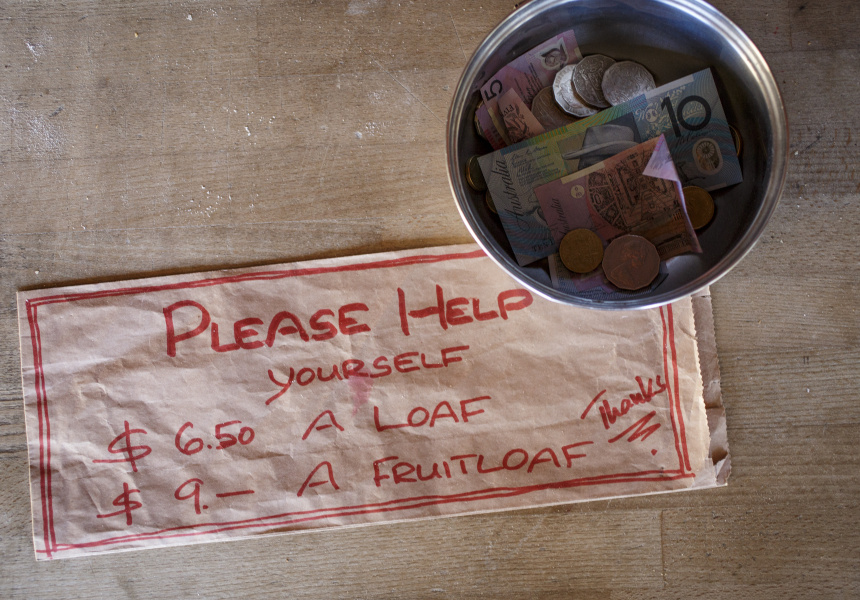 5
10
Australia
PLEASE HELP
YOURSELF
$ 6.50 A LOAF
$ 9.— A FRUITLOAF
Thanks